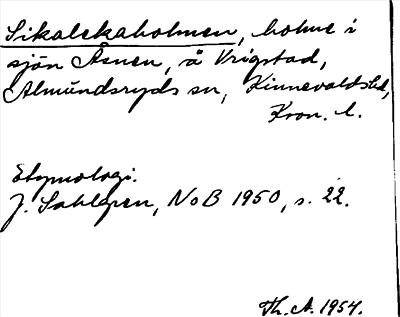 Sikalekaholmen, holme i
sjön Åsnen, å Vrigstad,
Almundsryds sn, Kinnevalds hd,
Kron. l.
Etymologi.
J. Sahlgren, NoB 1950, s. 22.
Th. A. 1954.